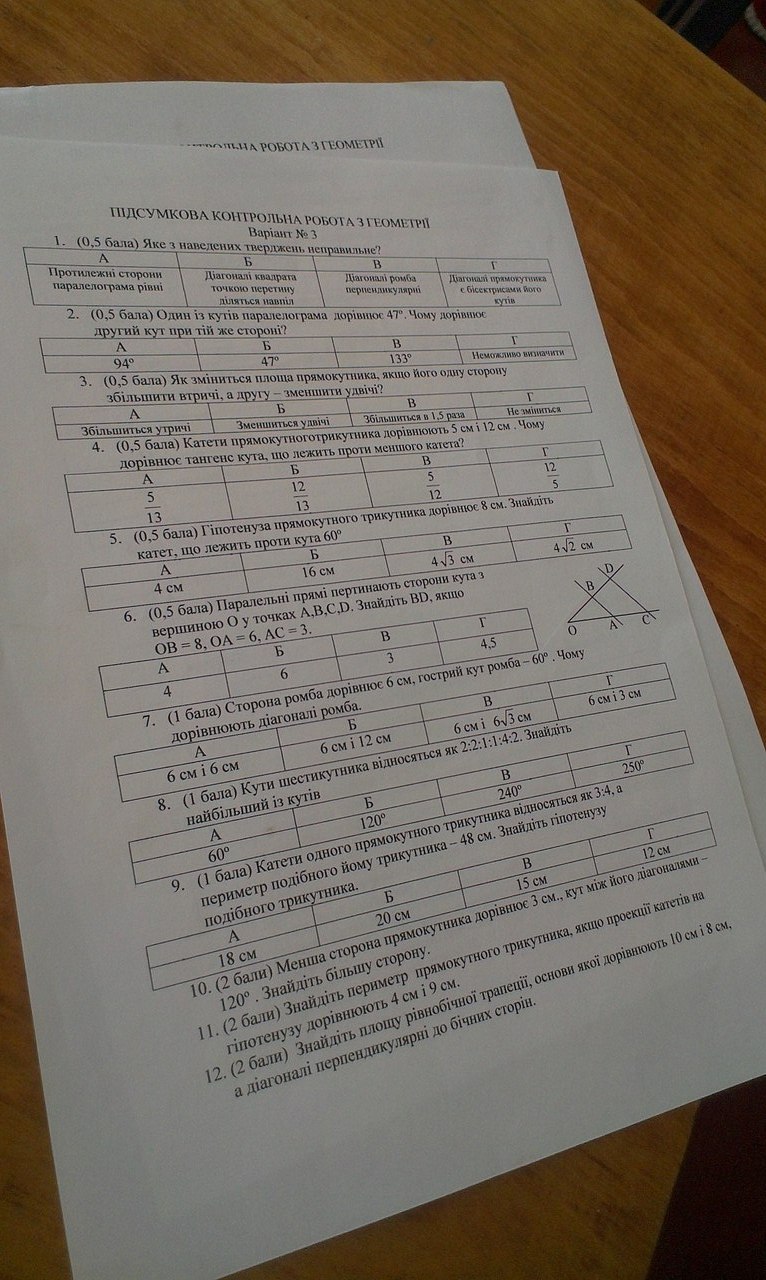 КОНТРОЛЬНА РОБОТА З ГЕОМЕТРІЇ
ПІДСУМКОВА КОНТРОЛЬНА РОБОТА З ГЕОМЕТРІЇ
Варіант № 3
1. (0,5 бала) Яке з наведених тверджень неправильне?
А Б В Г
Протилежні сторони паралелограма рівні
Діагоналі квадрата точкою перетину діляться навпіл
Діагоналі ромба перпендикулярні
Діагоналі прямокутника є бісектрисами його кутів
2. (0,5 бала) Один із кутів паралелограма дорівнює 47º. Чому дорівнює
другий кут при тій же стороні?
А Б В Г
94º 47º 133º Неможливо визначити
3. (0,5 бала) Як зміниться площа прямокутника, якщо його одну сторону
збільшити втричі, а другу – зменшити удвічі?
А Б В Г
Збільшиться утричі Зменшиться удвічі Збільшиться в 1,5 раза Не зміниться
4. (0,5 бала) Катети прямокутноготрикутника дорівнюють 5 см і 12 см . Чому
дорівнює тангенс кута, що лежить проти меншого катета?
А Б В Г
5/13 12/13 5/12 12/5
5. (0,5 бала) Гіпотенуза прямокутного трикутника дорівнює 8 см. Знайдіть
катет, що лежить проти кута 60º
А Б В Г
4 см 16 см 4√3 см 4√2 см
6. (0,5 бала) Паралельні прямі пертинають сторони кута з
вершиною О у точках A,B,C,D. Знайдіть BD, якщо
OB = 8, OA = 6, AC = 3.
D
B
O A C
А Б В Г
4 6 3 4,5
7. (1 бала) Сторона ромба дорівнює 6 см, гострий кут ромба – 60º . Чому
дорівнюють діагоналі ромба.
А Б В Г
6 см і 6 см 6 см і 12 см 6 см і 6√3 см 6 см і 3 см
8. (1 бала) Кути шестикутника відносяться як 2:2:1:1:4:2. Знайдіть
найбільший із кутів
А Б В Г
60º 120º 240º 250º
9. (1 бала) Катети одного прямокутного трикутника відносяться як 3:4, а
периметр подібного йому трикутника – 48 см. Знайдіть гіпотенузу
подібного трикутника.
А Б В Г
18 см 20 см 15 см 12 см
10. (2 бали) Менша сторона прямокутника дорівнює 3 см., кут між його діагоналями –
120º . Знайдіть більшу сторону.
11. (2 бали) Знайдіть периметр прямокутного трикутника, якщо проекції катетів на
гіпотенузу дорівнюють 4 см і 9 см.
12. (2 бали) Знайдіть площу рівнобічної трапеції, основи якої дорівнюють 10 см і 8 см,
а діагоналі перпендикулярні до бічних сторін.